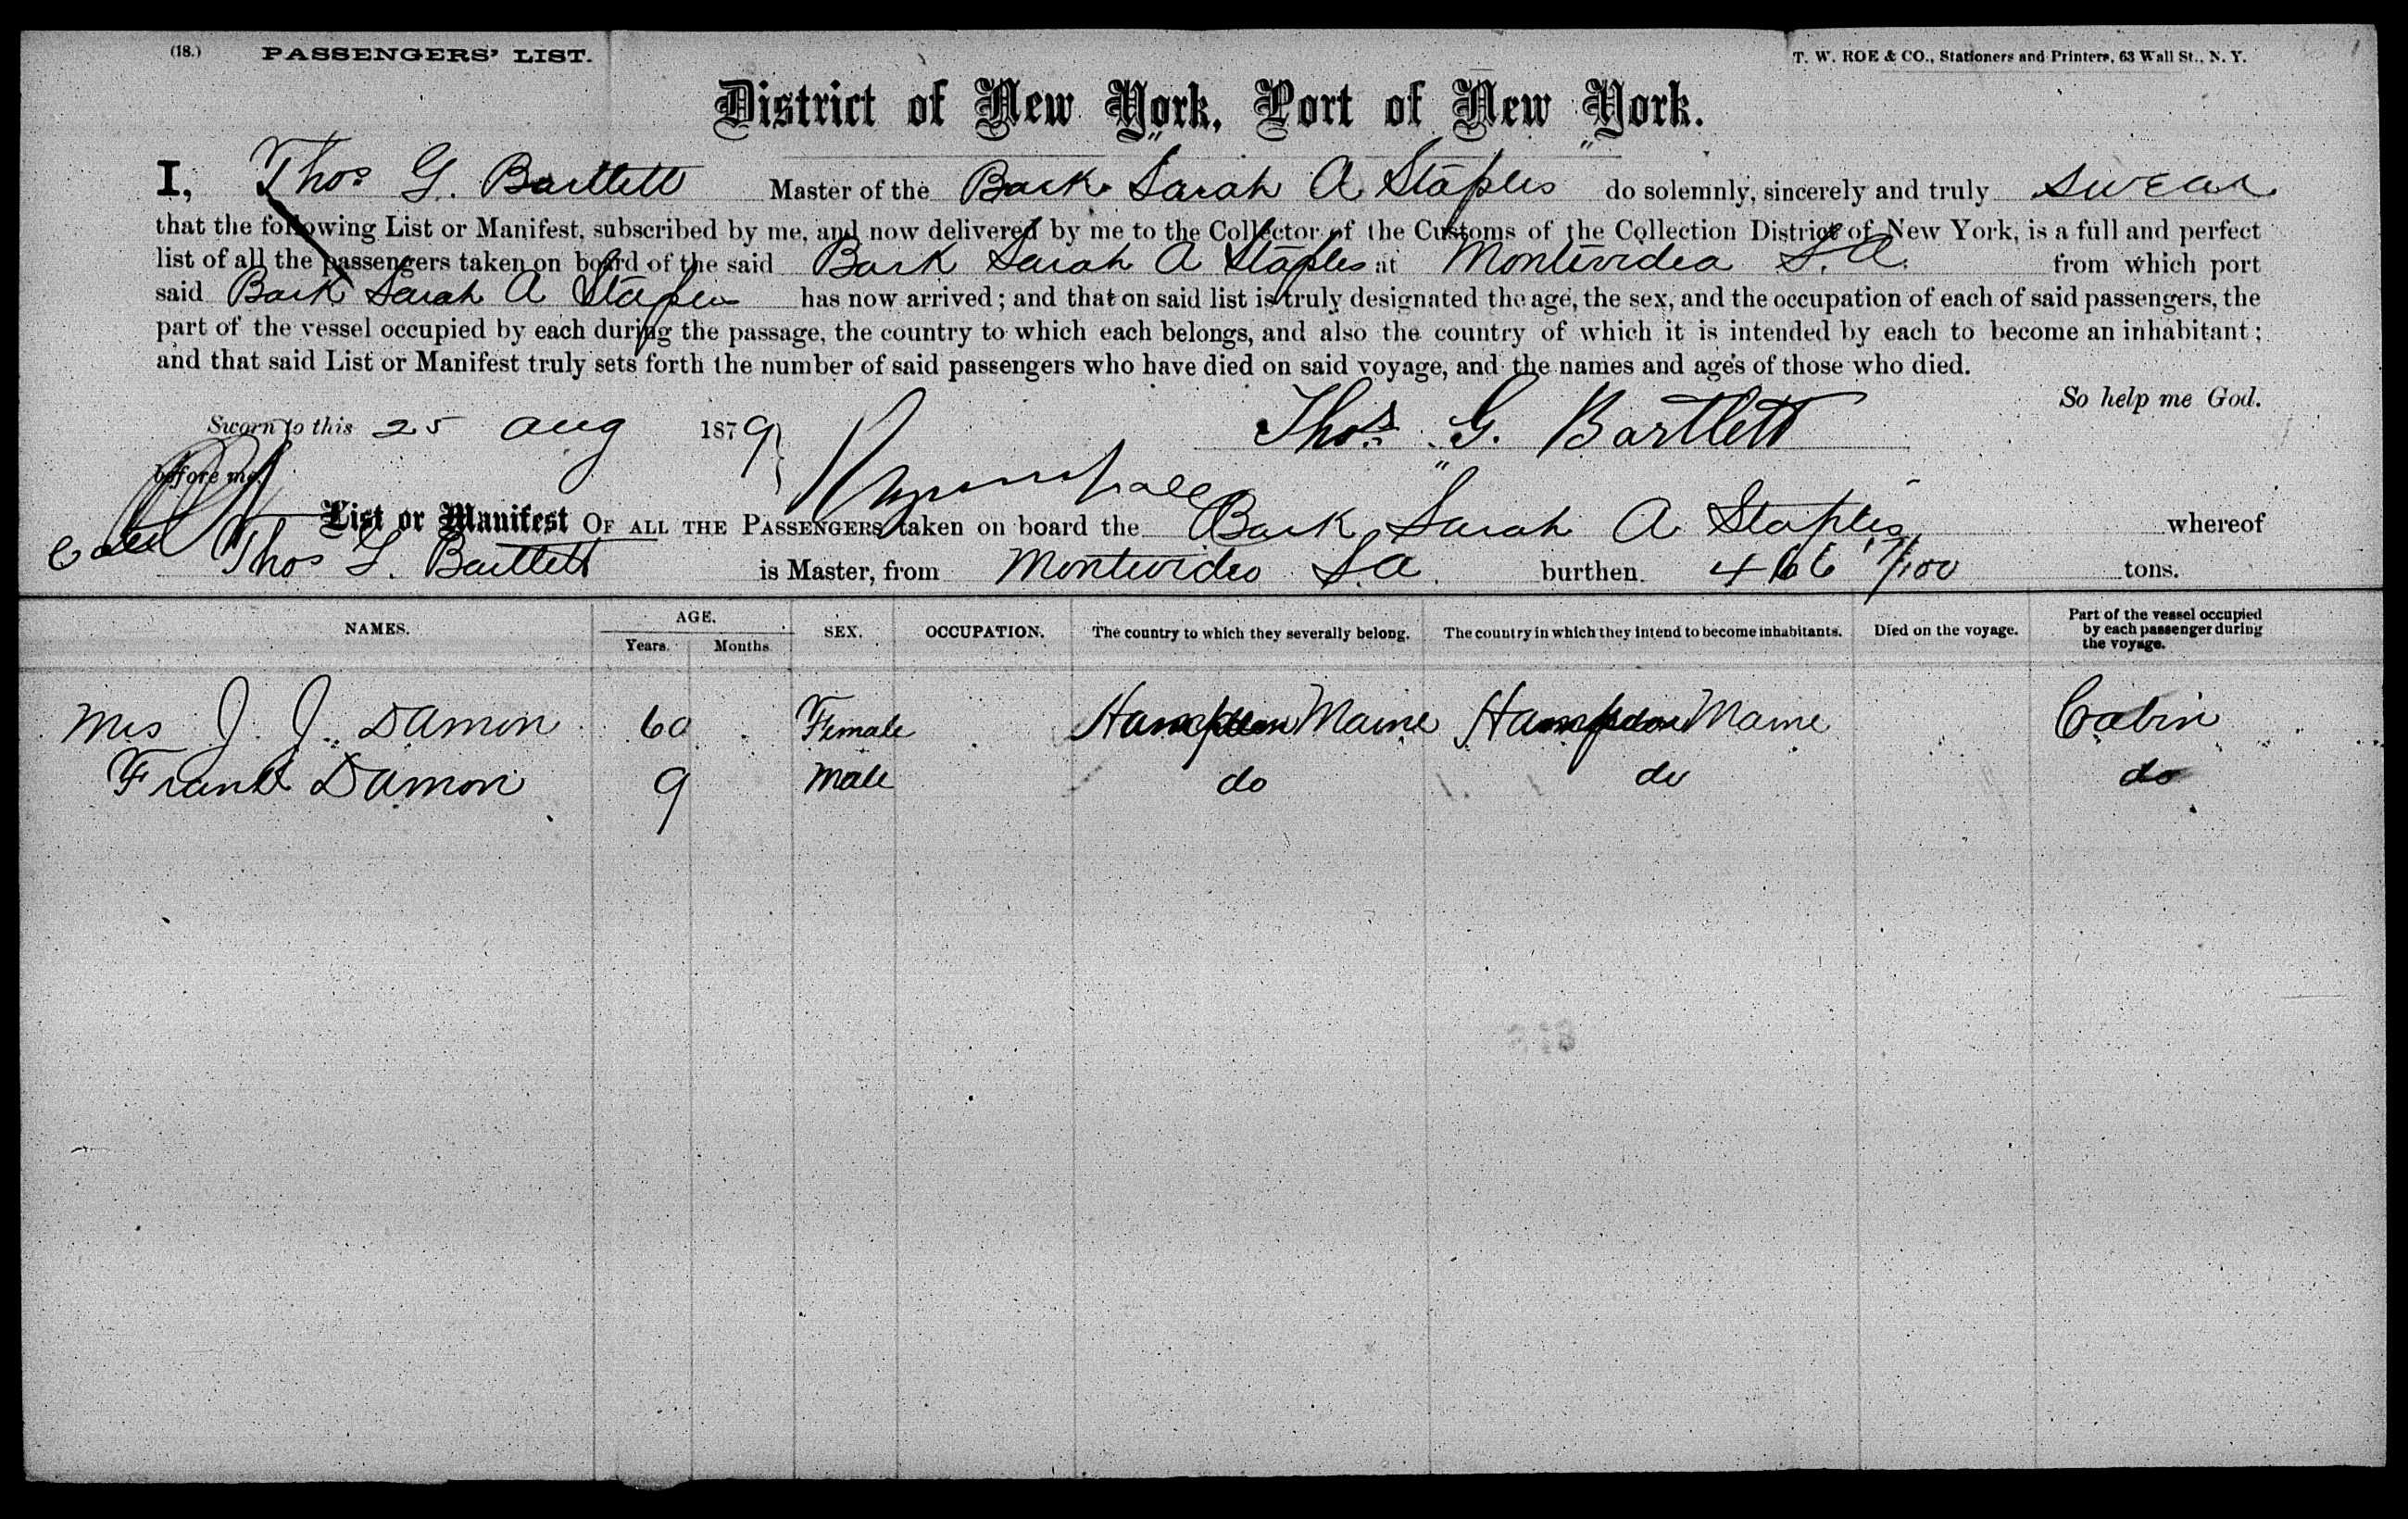 (18.) PASSENGERS' LIST. T. W. ROE & CO., Stationers and Printers, 63 Wall St., N. Y.
District of New York, Port of New York.
I, Thos G. Bartlett Master of the Bark Sarah A Staples do solemnly, sincerely and truly swear
that the following List or Manifest, subscribed by me, and now delivered by me to the Collector of the Customs of the Collection District of New York, is a full and perfect
list of all the passengers taken on board of the said Bark Sarah A Staples at Montevidea S. A. from which port
said Bark Sarah A Staples has now arrived; and that on said list is truly designated the age, the sex, and the occupation of each of said passengers, the
part of the vessel occupied by each during the passage, the country to which each belongs, and also the country of which it is intended by each to become an inhabitant;
and that said List or Manifest truly sets forth the number of said passengers who have died on said voyage, and the names and ages of those who died.
So help me God.
Sworn to this 25 Aug 1879 Thos. G. Bartlett
before me,
List or Manifest OF ALL THE PASSENGERS taken on board the Bark Sarah A Staples whereof
Thos G. Bartlett is Master, from Montevideo S.A. burthen 466 /100 tons.
NAMES. AGE. Years. Months. SEX. OCCUPATION. The country to which they severally belong. The country in which they intend to become inhabitants. Died on the voyage. Part of the vessel occupied by each passenger during the voyage.
Mrs J. J. Damon 60 Female Hampden Maine Hampden Maine Cabin
Frank Damon 9 Male do do do